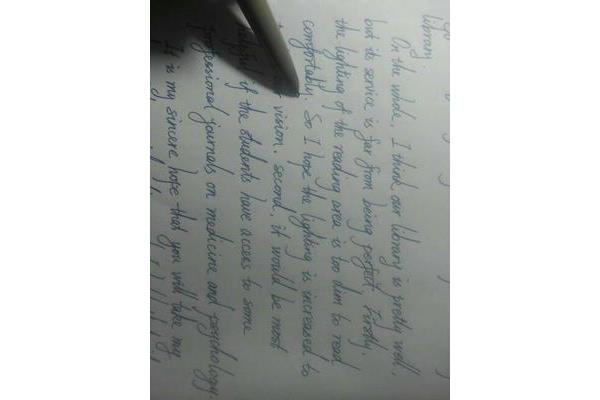 library
On the whole, I think our library is pretty well,
but its service is far from being perfect. Firstly,
the lighting of the reading area is too dim to read
comfortably. So I hope the lighting is increased to
vision. second, it would be most
helpful if the students have access to some
professional journals on medicine and psychology.
It is my sincere hope that you will take my